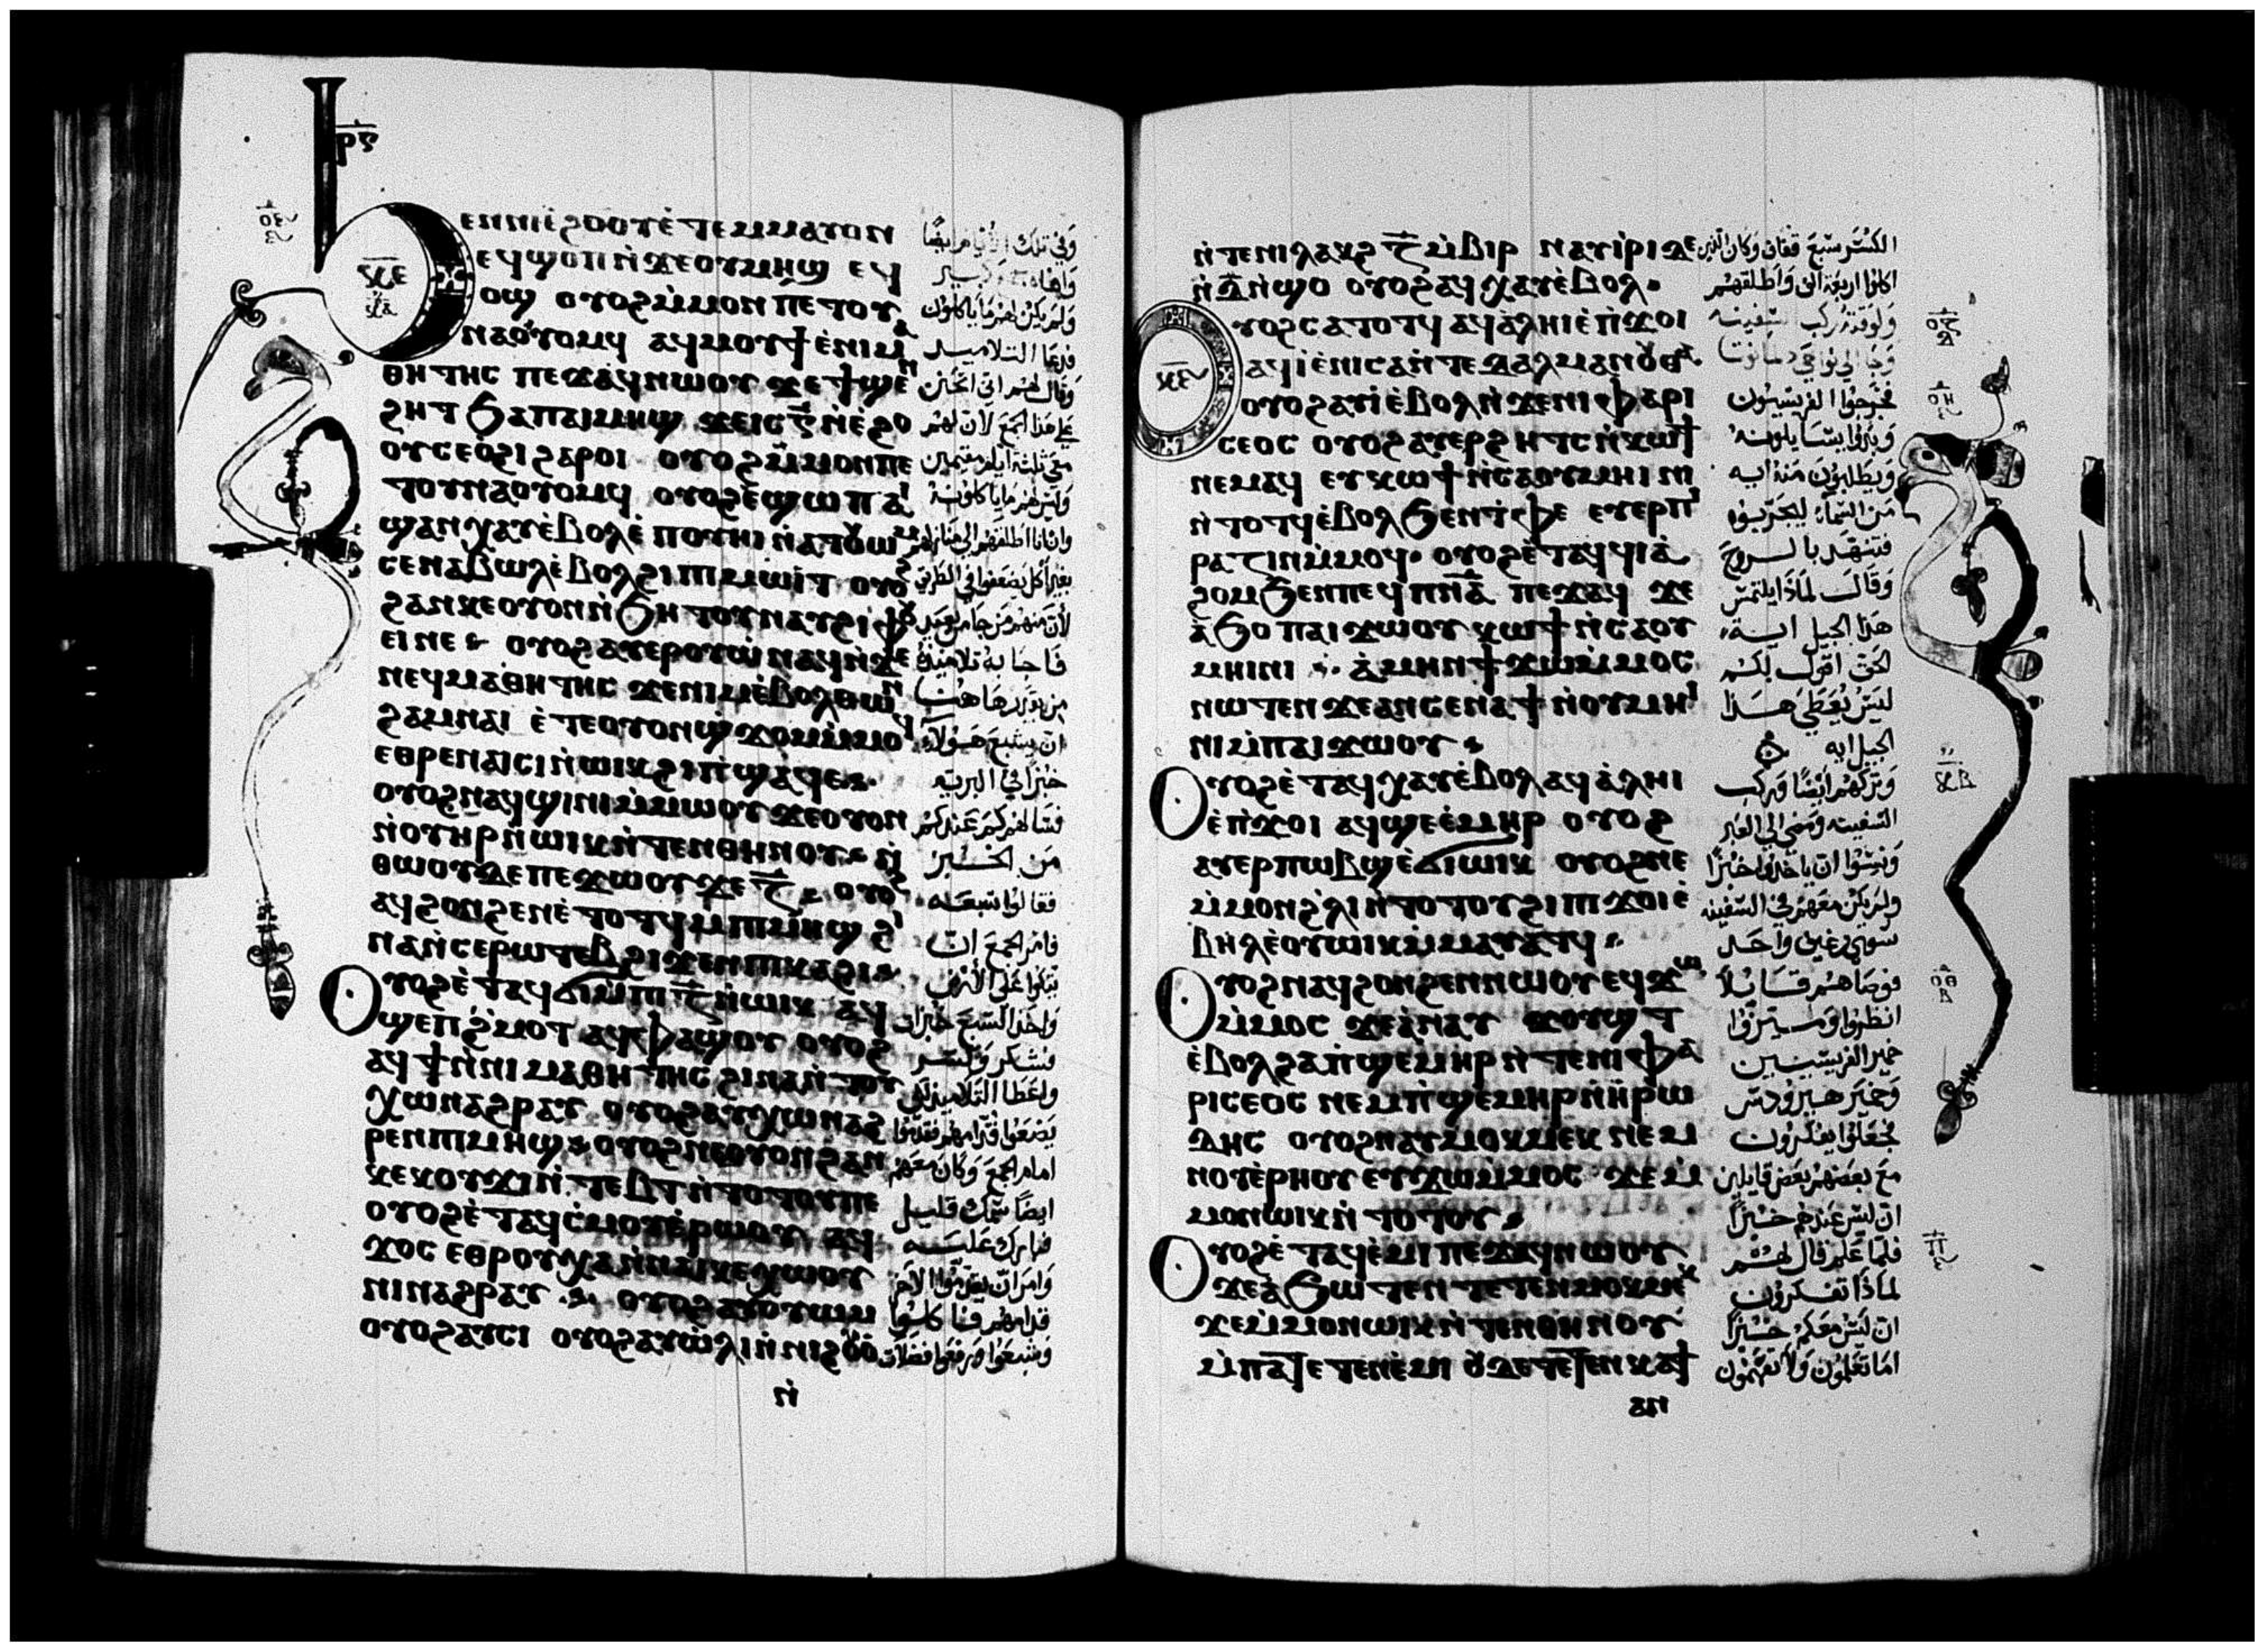 ⲣ̅ⲋ̅
Ϧⲉⲛⲛⲓⲉ̀ϩⲟⲟⲩⲉ̀ ⲧⲉⲙⲙⲁⲩⲟⲛ
ⲉϥϣⲟⲡ ⲛ̀ϫⲉⲟⲩⲙⲏϣ ⲉϥ
ⲟϣ ⲟⲩⲟϩⲙ̀ⲙⲟⲛ ⲡⲉⲧⲟⲩ
ⲛⲁⲟⲩⲟⲙϥ ⲁϥⲙⲟⲩϯ ⲉ̀ⲛⲓⲙⲁ
ⲑⲏⲧⲏⲥ ⲡⲉϫⲁϥⲛⲱⲟⲩ ϫⲉϯϣⲉⲛ
ϩⲏⲧ ϧⲁⲡⲁⲓⲙⲏϣ ϫⲉⲓⲥ ⲅ̅ ⲛ̀ⲉ̀ϩⲟ
ⲟⲩⲥⲉⲟ̀ϩⲓ ϩⲁⲣⲟⲓ ⲟⲩⲟϩⲙ̀ⲙⲟⲛⲡⲉ
ⲧⲟⲩⲛⲁⲟⲩⲟⲙϥ ⲟⲩⲟϩⲉ̀ϣⲱⲡ ⲁⲓ
ϣⲁⲛⲭⲁⲩⲉ̀ⲃⲟⲗⲉ̀ ⲡⲟⲩⲏⲓ ⲛ̀ⲁⲧⲟⲩⲱⲙ
ⲥⲉⲛⲁⲃⲱⲗⲉ̀ⲃⲟⲗϩⲓⲡⲓⲙⲱⲓⲧ ⲟⲩⲟϩ
ϩⲁⲛⲕⲉⲟⲩⲟⲛⲛ̀ϧⲏⲧⲟⲩⲛⲁⲩϩⲓⲫⲟⲩ
ⲉⲓⲛⲉ ⲟⲩⲟϩⲁⲩⲉⲣⲟⲩⲱ̀ⲛⲁϥⲛ̀ϫⲉ
ⲛⲉϥⲙⲁⲑⲏⲧⲏⲥ ϫⲉⲛⲓⲙⲉ̀ⲃⲟⲗⲑⲱⲛ
ϩⲁⲙⲛⲁⲓ ⲉ̀ⲧⲉⲟⲩⲟⲛϣϫⲟⲙⲙ̀ⲙⲟϥ
ⲉⲑⲣⲉⲛⲁⲓⲥⲓⲛ̀ⲱⲓⲕϩⲓⲡ̀ϣⲁϥⲉ
ⲟⲩⲟϩⲛⲁϥϣⲓⲛⲓⲙ̀ⲙⲱⲟⲩ ϫⲉⲟⲩⲟⲛ
ⲛ̀ⲟⲩⲏⲣⲛ̀ⲱⲓⲕⲛ̀ⲧⲉⲛⲑⲏⲛⲟⲩ ⲛ̀
ⲑⲱⲟⲩⲇⲉⲡⲉϫⲱⲟⲩ ϫⲉ ⲍ̅ ⲟⲩⲟϩ
ⲁϥϩⲟⲛϩⲉⲛⲉ̀ⲧⲟⲧϥⲙⲡⲓⲙⲏϣ ϩⲓ
ⲛⲁⲛ̀ⲥⲉⲣⲱⲧⲉⲃ ϩⲓϫⲉⲛⲡⲓⲕⲁϩⲓ
Ⲟⲩⲟϩⲉ̀ⲧⲁϥϭⲓⲙ̀ⲡⲓ ⲍ̅ ⲛ̀ⲱⲓⲕ ⲁϥ
ϣⲉⲡϩ̀ⲙⲟⲧ ⲁϥⲫⲁϣⲟⲩ ⲟⲩⲟϩ
ⲁϥϯⲛ̀ⲛⲓⲙⲁⲑⲏⲧⲏⲥ ϩⲓⲛⲁⲛ̀ⲧⲟⲩ
ⲭⲱⲛⲁϩⲣⲁⲩ ⲟⲩⲟϩⲁⲩⲭⲱⲛⲁϩ
ⲣⲉⲛⲡⲓⲙⲏϣ ⲟⲩⲟϩⲛⲉⲟⲩⲟⲛϩⲁⲛ
ⲕⲉⲕⲟⲩϫⲓⲛ̀ⲧⲉⲃⲧⲛ̀ⲧⲟⲧⲟⲩⲡⲉ
ⲟⲩⲟϩⲉ̀ⲧⲁϥⲥ̀ⲙⲟⲩⲉ̀ⲣⲱⲟⲩ ⲁϥ
ϫⲟⲥ ⲉⲑⲣⲟⲩⲭⲁⲛ̀ⲛⲁⲓⲕⲉⲭⲱⲟⲩ
ⲛⲓⲛⲁϩⲣⲁⲩ ⲟⲩⲟϩⲁⲩⲟⲩⲱⲙ
ⲟⲩⲟϩⲁⲩⲥⲓ ⲟⲩⲟϩⲁⲩⲱ̀ⲗⲓⲛ̀ⲛⲓϩⲟⲩⲟ̀
ⲛ̀
وفي تلك الايام ايضا
ولم يكن لهم ما ياكلون
فدعا التلاميد
وقال لهم اني اتحنن
على هذا الجمع لان لهم
معي ثلثة ايام مقيمين
وليس لهم ما ياكلونه
وان انا اطلقتهم الى منازلهم
بغير اكل يضعفوا في الطريق
لان منهم من جا من بعيد
فاجابه تلاميذه
من يقدر هاهنا
ان يشبع هولاء
خبزا في البريه
فسالهم كم عندكم
من الخبز
فقالوا سبعه
فامر الجمع ان
يتكوا على الارض
واخذ السبع خبزات
فشكر وكسر
واعطا التلاميذ لكي
يضعوا قدامهم فقدموا
امام الجمع وكان معهم
ايضا سمك قليل
فبارك عليه
وامر ان يقدموا الاخر
قدامهم فاكلوا
وشبعوا ورفعوا فضلات
ⲛ̀ⲧⲉⲛⲓⲗⲁⲕϩ ⲍ̅ ⲙ̀ⲃⲓⲣ ⲛⲁⲩⲓ̀ⲣⲓⲇⲉ
ⲛ̀ ⲇ̅ ⲛ̀ϣⲟ ⲟⲩⲟϩⲁϥⲭⲁⲩⲉ̀ⲃⲟⲗ
Ⲟⲩⲟϩⲥⲁⲧⲟⲧϥ ⲁϥⲁ̀ⲗⲏⲓⲉ̀ⲡ̀ϫⲟⲓ
ⲁϥⲓ̀ⲉ̀ⲛⲓⲥⲁⲛ̀ⲧⲉⲇⲁⲗⲙⲁⲛⲟⲩⲑⲁ
ⲟⲩⲟϩⲁⲩⲓ̀ⲉ̀ⲃⲟⲗⲛ̀ϫⲉⲛⲓⲫⲁⲣⲓ
ⲥⲉⲟⲥ ⲟⲩⲟϩⲁⲩⲉⲣϩⲏⲧⲥⲛ̀ⲕⲱϯ
ⲛⲉⲙⲁϥ ⲉⲩⲕⲱϯⲛ̀ⲥⲁⲟⲩⲙⲏⲓⲛⲓ
ⲛ̀ⲧⲟⲧϥⲉ̀ⲃⲟⲗϧⲉⲛⲧ̀ⲫⲉ ⲉⲩⲉⲣⲡⲓ
ⲣⲁⲍⲓⲛⲙ̀ⲙⲟϥ ⲟⲩⲟϩⲉ̀ⲧⲁϥϥⲓⲁ̀
ϩⲟⲙϧⲉⲛⲡⲉϥⲡ̅ⲛ̅ⲁ̅ ⲡⲉϫⲁϥ ϫⲉ
ⲁ̀ϧⲟ ⲡⲁⲓϫⲱⲟⲩ ⲕⲱϯⲛ̀ⲥⲁⲟⲩ
ⲙⲏⲓⲛⲓ ⲁ̀ⲙⲏⲛϯϫⲱⲙ̀ⲙⲟⲥ
ⲛⲱⲧⲉⲛ ϫⲉⲁⲛⲥⲉⲛⲁϯⲛ̀ⲟⲩⲙⲏⲓ
ⲛⲓⲙ̀ⲡⲁⲓϫⲱⲟⲩ
Ⲟⲩⲟϩⲉ̀ⲧⲁϥⲭⲁⲩⲉ̀ⲃⲟⲗ ⲁϥⲁ̀ⲗⲏⲓ
ⲉ̀ⲡ̀ϫⲟⲓ ⲁϥϣⲉⲉ̀ⲙⲏⲣ ⲟⲩⲟϩ
ⲁⲩⲉⲣⲡⲱⲃϣⲉ̀ϭⲓⲱⲓⲕ ⲟⲩⲟϩⲛⲉ
ⲙ̀ⲙⲟⲛϩ̀ⲗⲓⲛ̀ⲧⲟⲧⲟⲩϩⲓⲡⲓϫⲟⲓⲉ̀
ⲃⲏⲗⲉ̀ⲟⲩⲱⲓⲕⲙ̀ⲙⲁⲩⲁⲧϥ
Ⲟⲩⲟϩⲛⲁϥϩⲟⲛϩⲉⲛⲛⲱⲟⲩ ⲉϥϫⲱ
ⲙ̀ⲙⲟⲥ ϫⲉⲁ̀ⲛⲁⲩ ϫⲟⲩϣⲧ
ⲉ̀ⲃⲟⲗϩⲁⲡ̀ϣⲉⲙⲏⲣⲛ̀ⲧⲉⲛⲓⲫⲁ
ⲣⲓⲥⲉⲟⲥ ⲛⲉⲙⲡ̀ϣⲉⲙⲏⲣⲛ̀ⲏ̀ⲣⲱ
ⲇⲏⲥ ⲟⲩⲟϩⲛⲁⲩⲙⲟⲕⲙⲉⲕ ⲛⲉⲙ
ⲛⲟⲩⲉ̀ⲣⲏⲟⲩ ⲉⲩϫⲱⲙ̀ⲙⲟⲥ ϫⲉⲙ̀
ⲙⲟⲛⲱⲓⲕⲛ̀ⲧⲟⲧⲟⲩ
Ⲟⲩⲟϩⲉ̀ⲧⲁϥⲉ̀ⲙⲓ ⲡⲉϫⲁϥⲛⲱⲟⲩ
ϫⲉⲁ̀ϧⲱⲧⲉⲛ ⲧⲉⲧⲉⲛⲙⲟⲕⲙⲉⲕ
ϫⲉⲙ̀ⲙⲟⲛⲱⲓⲕⲛ̀ⲧⲉⲛⲑⲏⲛⲟⲩ
ⲙ̀ⲡⲁⲧⲉⲧⲉⲛⲉ̀ⲙⲓ ⲟⲩⲇⲉⲧⲉⲧⲉⲛⲕⲁϯ
ⲁⲛ
الكسر سبع قفاف وكان الذين
اكلوا اربعة الاف واطلقهم
ولوقته ركب سفينه
فخرجوا الفريسيون
وبدوا يسايلونه
ويطلبون منه ايه
من السماء ليجربوه
فتنهد بالروح
وقال لماذا يلتمس
هذا الجيل اية
الحق اقول لكم
ليس يعطى هذا
الجيل ايه
وتركهم ايضا وركب
السفينه ومضى الى العبر
ونسوا ان ياخذوا خبزا
ولم يكن معهم في السفينه
سوى رغيف واحد
فوصاهم قايلا
انظروا وتحرزوا
خمير الفريسيين
وخمير هيرودس
فجعلوا يفكرون
مع بعضهم بعض قايلين
ان ليس عندهم خبزا
فلما علم قال لهم
لماذا تفكرون
ان ليس معكم خبزا
اما تعلمون ولا تفهمون